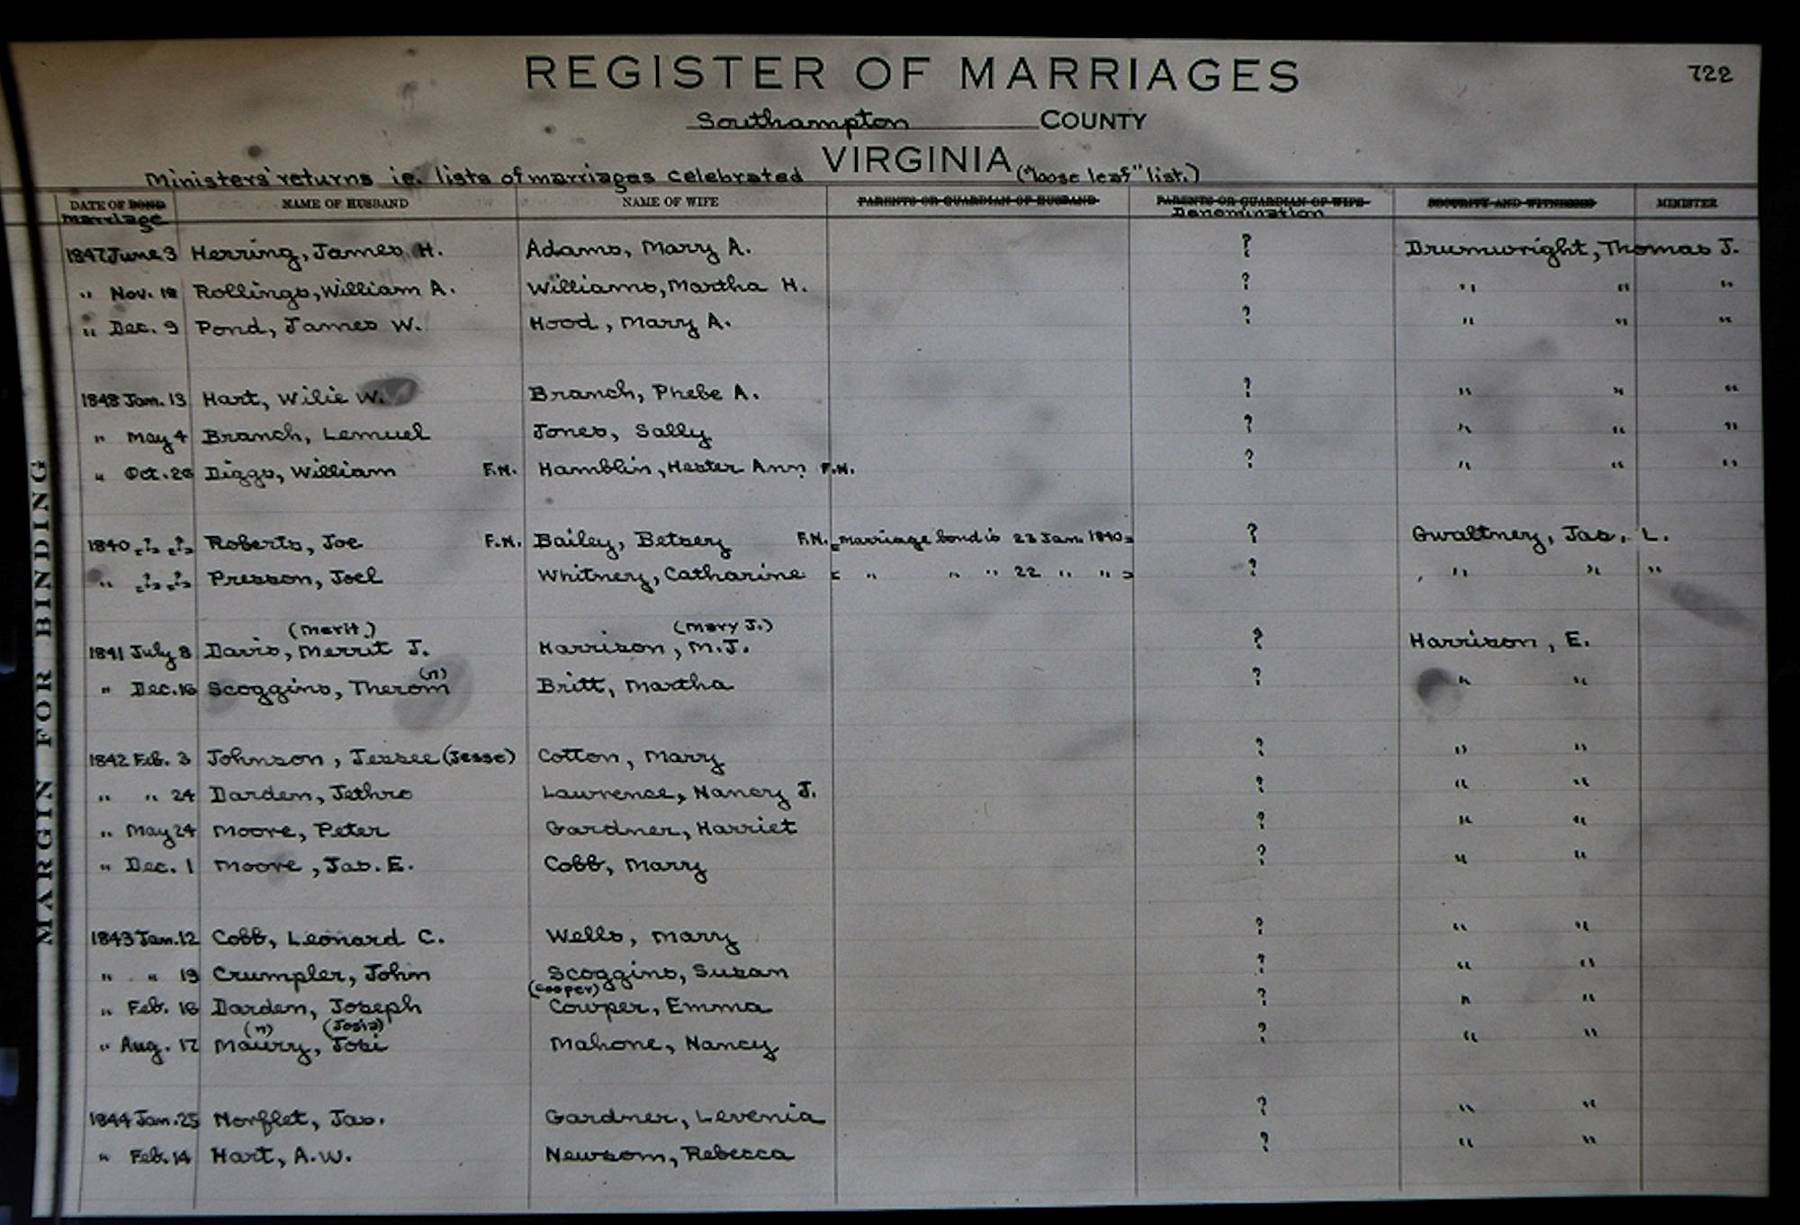 REGISTER OF MARRIAGES 722
Southampton COUNTY
VIRGINIA
Ministers' returns ie. lists of marriages celebrated ("loose leaf" list.)
DATE OF BOND NAME OF HUSBAND NAME OF WIFE PARENTS OR GUARDIAN OF HUSBAND PARENTS OR GUARDIAN OF WIFE SECURITY AND WITNESSES MINISTER
marriage Denomination
1847 June 3 Herring, James H. Adams, Mary A. ? Drumwright, Thomas J.
" Nov. 18 Rollings, William A. Williams, Martha H. ? " " "
" Dec. 9 Pond, James W. Hood, Mary A. ? " " "
1848 Jan. 13 Hart, Wilie W. Branch, Phebe A. ? " " "
" May 4 Branch, Lemuel Jones, Sally ? " " "
" Oct. 26 Diggs, William F.N. Hamblin, Hester Ann F.N. ? " " "
1840 ? ? Roberts, Joe F.N. Bailey, Betsey F.N. [marriage bond is 23 Jan. 1840] ? Gwaltney, Jas. L.
" ? ? Presson, Joel Whitney, Catharine [ " " " 22 " " ] ? " " "
(Merit) (Mary J.)
1841 July 8 Davis, Merrit J. Harrison, M.J. ? Harrison, E.
(n)
" Dec. 16 Scoggins, Therom Britt, Martha ? " "
1842 Feb. 3 Johnson, Jessee (Jesse) Cotton, Mary ? " "
" " 24 Darden, Jethro Lawrence, Nancy J. ? " "
" May 24 Moore, Peter Gardner, Harriet ? " "
" Dec. 1 Moore, Jas. E. Cobb, Mary ? " "
1843 Jan. 12 Cobb, Leonard C. Wells, Mary ? " "
" " 19 Crumpler, John Scoggins, Susan ? " "
(Cooper)
" Feb. 16 Darden, Joseph Cowper, Emma ? " "
(n) (Josia)
" Aug. 17 Maury, Tosi Mahone, Nancy ? " "
1844 Jan. 25 Norflet, Jas. Gardner, Levenia ? " "
" Feb. 14 Hart, A.W. Newsom, Rebecca ? " "
MARGIN FOR BINDING